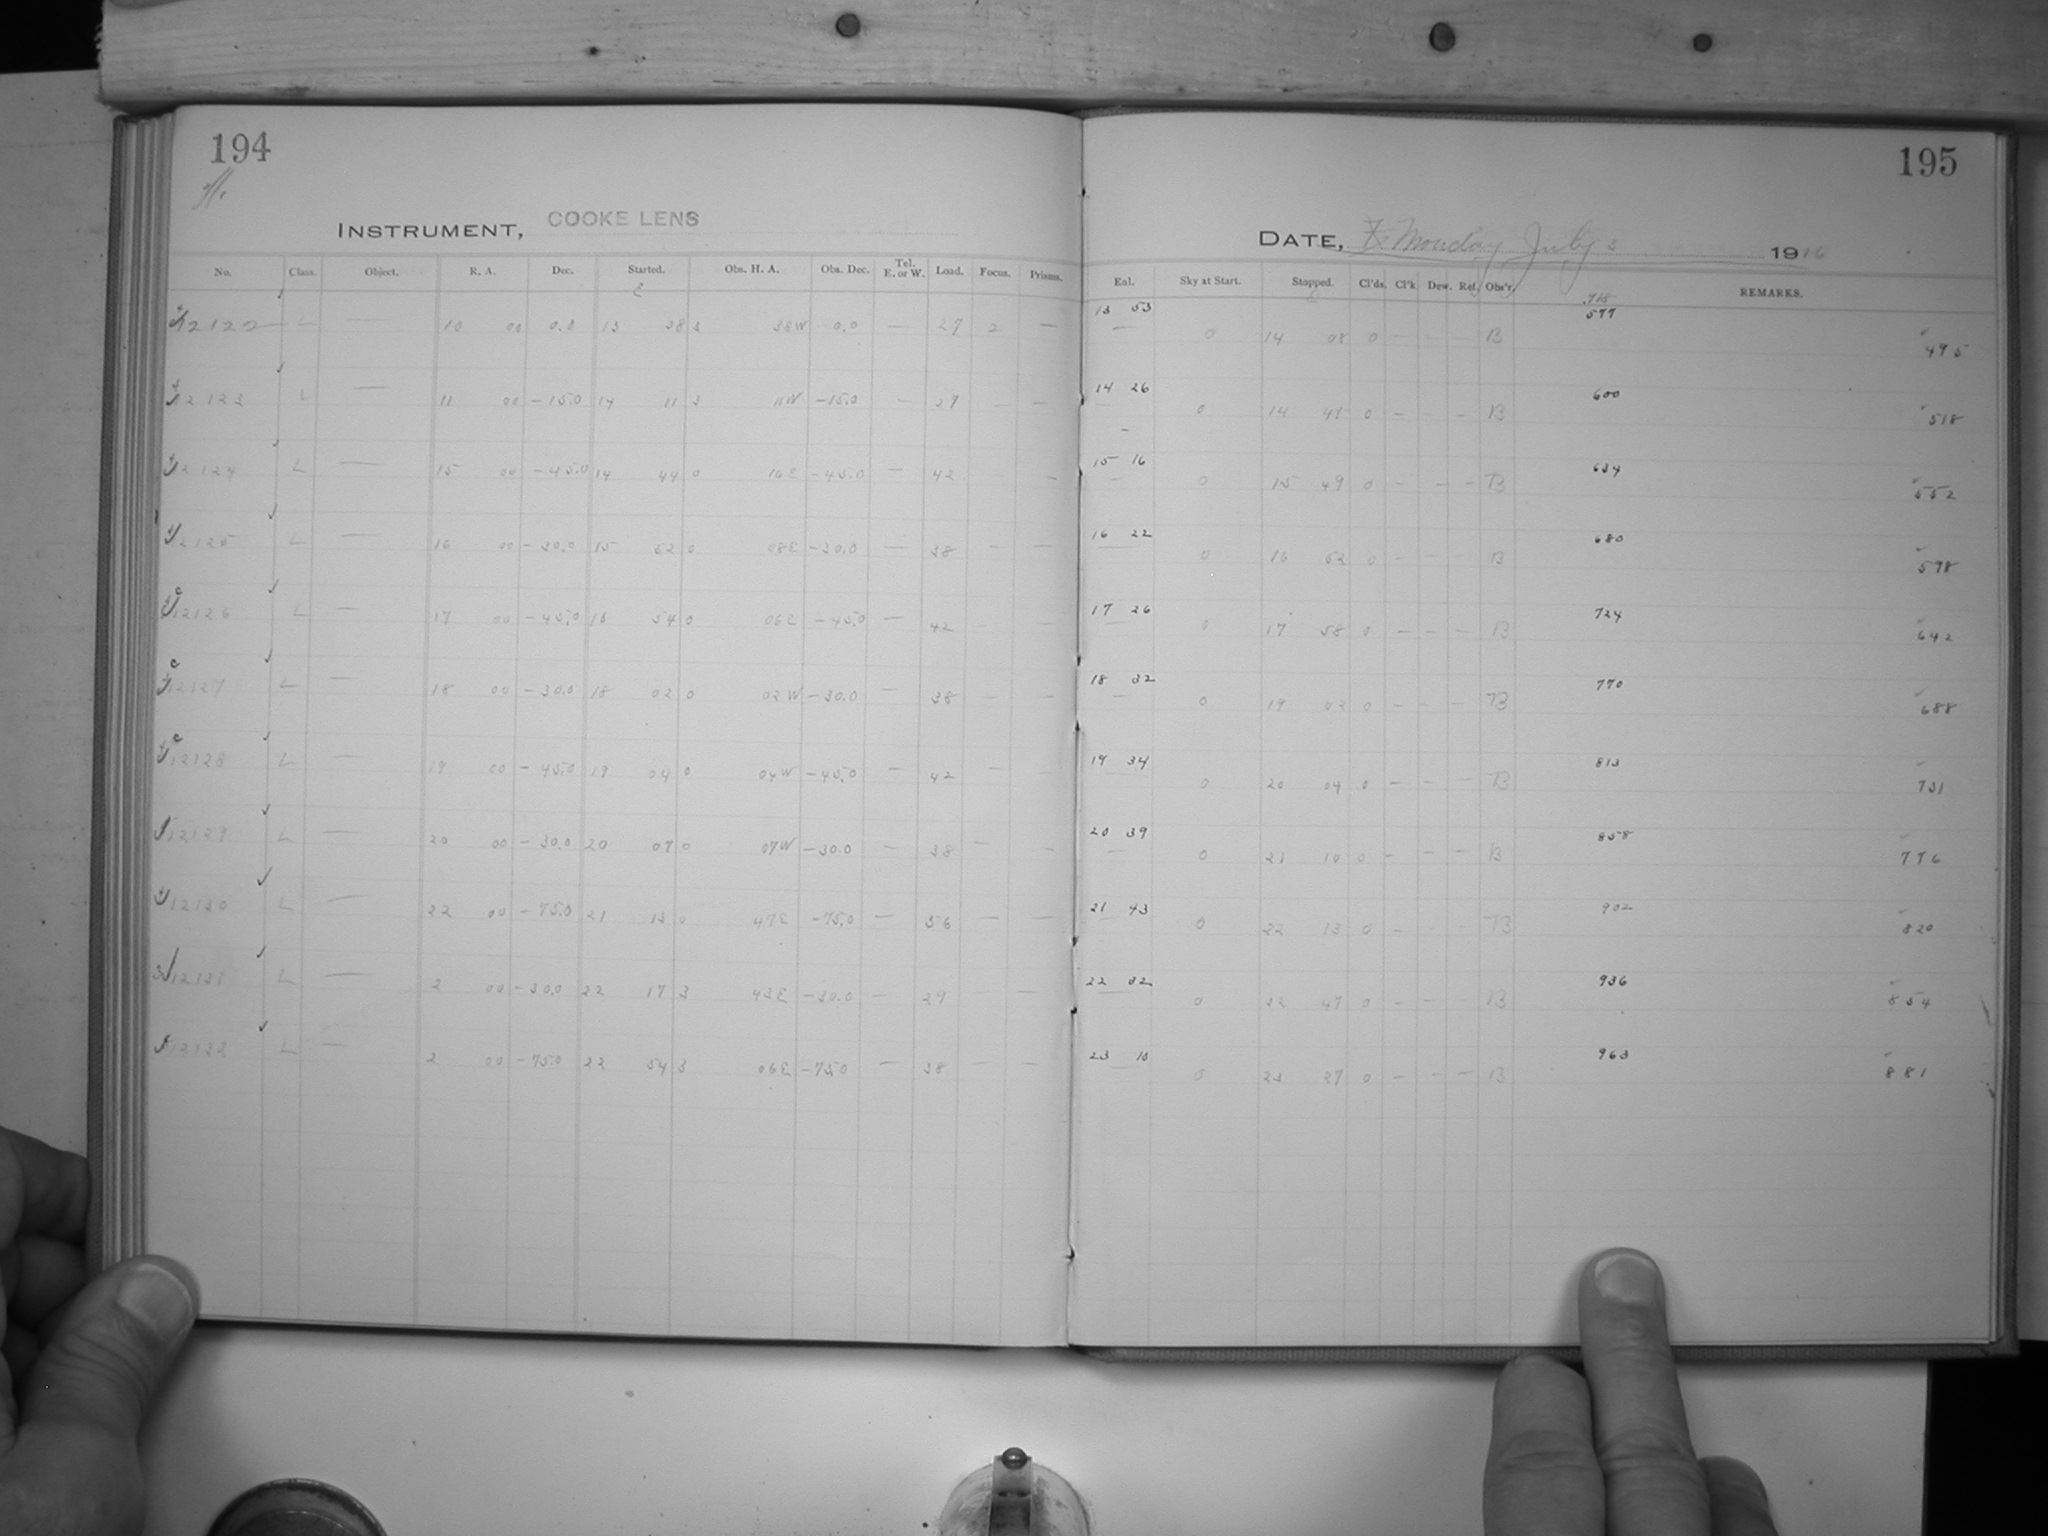 194
195
INSTRUMENT, COOKE LENS
DATE, Monday July 3 1916
No. Class. Object. R. A. Dec. Started. Obs. H. A. Obs. Dec. Tel. E. or W. Load. Focus. Prisms.
Eal. Sky at Start. Stopped. Cl'ds. Cl'k Dew. Ref. Obs'r. REMARKS.
12122 L 10 00 0.0 13 38 3 38W 0.0 — 27 2 — 13 53 0 14 08 0 — B 577 495
12123 L — 11 00 -15.0 14 11 3 11W -15.0 — 29 — — 14 26 0 14 41 0 — — B 600 518
12124 L — 15 00 -45.0 14 44 0 16E -45.0 — 42 — 15 16 0 15 49 0 — — — B 634 552
12125 L — 16 00 -30.0 15 52 0 08E -30.0 — 38 — — 16 22 0 16 52 0 — — B 680 598
12126 L — 17 00 -45.0 16 54 0 06E -45.0 — 42 — — 17 26 0 17 58 0 — — — B 724 642
12127 L — 18 00 -30.0 18 02 0 02W -30.0 — 38 — — 18 32 0 19 02 0 — — — B 770 688
12128 L — 19 00 -45.0 19 04 0 04W -45.0 — 42 — — 19 34 0 20 04 0 — — — B 813 731
12129 L — 20 00 -30.0 20 07 0 07W -30.0 — 38 — — 20 39 0 21 10 0 — — — B 858 776
12130 L — 22 00 -75.0 21 13 0 47E -75.0 — 56 — — 21 43 0 22 13 0 — B 902 820
12131 L — 2 00 -30.0 22 17 3 43E -30.0 — 29 — — 22 32 0 22 47 0 — — — B 936 854
12132 L — 2 00 -75.0 22 54 3 06E -75.0 — 38 — — 23 10 0 23 27 0 — — — B 963 881